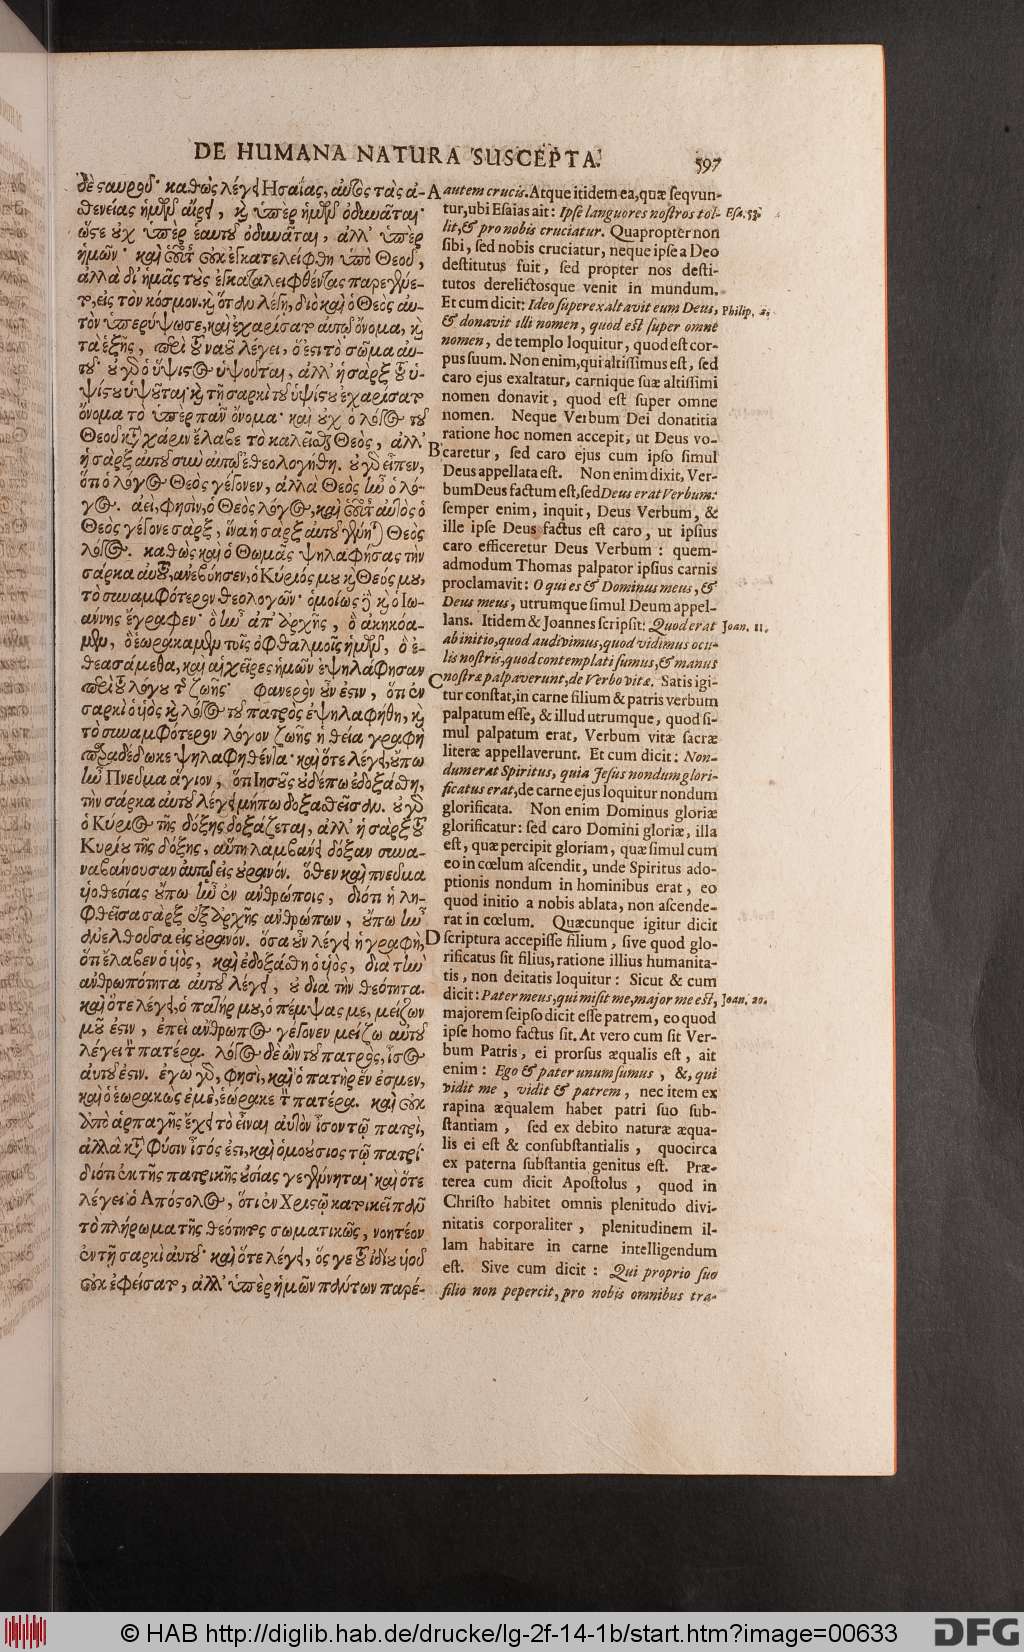 DE HUMANA NATURA SUSCEPTA.
597
δὲ σταυροῦ· καθὼς λέγει Ἡσαΐας, αὐτὸς τὰς ἀ-
σθενείας ἡμῶν αἴρει, καὶ ὑπὲρ ἡμῶν ὀδυνᾶται·
ὥστε οὐχ ὑπὲρ ἑαυτοῦ ὀδυνᾶται, ἀλλ' ὑπὲρ
ἡμῶν· καὶ οὐκ ἐγκατελείφθη ὑπὸ Θεοῦ,
ἀλλὰ δι' ἡμᾶς τοὺς ἐγκαταλειφθέντας παρεγένε-
το, εἰς τὸν κόσμον. καὶ ὅταν λέγῃ, διὸ καὶ ὁ Θεὸς αὐ-
τὸν ὑπερύψωσε, καὶ ἐχαρίσατο αὐτῷ ὄνομα, καὶ
τὰ ἑξῆς, περὶ τοῦ ναοῦ λέγει, ὅ ἐστι τὸ σῶμα αὐ-
τοῦ· οὐ γὰρ ὁ ὕψιστος ὑψοῦται, ἀλλ' ἡ σὰρξ τοῦ ὑ-
ψίστου ὑψοῦται· καὶ τῇ σαρκὶ τοῦ ὑψίστου ἐχαρίσατο
ὄνομα τὸ ὑπὲρ πᾶν ὄνομα· καὶ οὐχ ὁ λόγος τοῦ
Θεοῦ κατὰ χάριν ἔλαβε τὸ καλεῖσθαι Θεὸς, ἀλλ'
ἡ σὰρξ αὐτοῦ σὺν αὐτῷ ἐθεολογήθη. οὐ γὰρ εἶπεν,
ὅτι ὁ λόγος Θεὸς γέγονεν, ἀλλὰ Θεὸς ἦν ὁ λό-
γος. ἀεὶ, φησὶν, ὁ Θεὸς λόγος, καὶ αὐτὸς ὁ
Θεὸς γέγονε σὰρξ, ἵνα ἡ σὰρξ αὐτοῦ γένηται Θεὸς
λόγος. καθὼς καὶ ὁ Θωμᾶς ψηλαφήσας τὴν
σάρκα αὐτοῦ, ἀνεβόησεν, ὁ Κύριός μου καὶ Θεός μου,
τὸ συναμφότερον θεολογῶν· ὁμοίως δὲ καὶ ὁ Ἰω-
άννης ἔγραφεν· ὃ ἦν ἀπ' ἀρχῆς, ὃ ἀκηκόα-
μεν, ὃ ἑωράκαμεν τοῖς ὀφθαλμοῖς ἡμῶν, ὃ ἐ-
θεασάμεθα, καὶ αἱ χεῖρες ἡμῶν ἐψηλάφησαν
περὶ τοῦ λόγου τῆς ζωῆς· φανερὸν οὖν ἐστιν, ὅτι ἐν
σαρκὶ ὁ υἱὸς καὶ λόγος τοῦ πατρὸς ἐψηλαφήθη, καὶ
τὸ συναμφότερον λόγον ζωῆς ἡ θεία γραφὴ
παραδέδωκε ψηλαφηθέντα· καὶ ὅτε λέγει, οὔπω
ἦν Πνεῦμα ἅγιον, ὅτι Ἰησοῦς οὐδέπω ἐδοξάσθη,
τὴν σάρκα αὐτοῦ λέγει μήπω δοξασθεῖσαν. οὐ γὰρ
ὁ Κύριος τῆς δόξης δοξάζεται, ἀλλ' ἡ σὰρξ τοῦ
Κυρίου τῆς δόξης, αὕτη λαμβάνει δόξαν συνα-
ναβαίνουσα αὐτῷ εἰς οὐρανόν. ὅθεν καὶ πνεῦμα
υἱοθεσίας οὔπω ἦν ἐν ἀνθρώποις, διότι ἡ λη-
φθεῖσα σὰρξ ἐξ ἀρχῆς ἀνθρώπων, οὔπω ἦν
ἀνελθοῦσα εἰς οὐρανόν. ὅσα οὖν λέγει ἡ γραφὴ,
ὅτι ἔλαβεν ὁ υἱὸς, καὶ ἐδοξάσθη ὁ υἱὸς, διὰ τὴν
ἀνθρωπότητα αὐτοῦ λέγει, οὐ διὰ τὴν θεότητα.
καὶ ὅτε λέγει, ὁ πατήρ μου, ὁ πέμψας με, μείζων
μοῦ ἐστιν, ἐπεὶ ἄνθρωπος γέγονεν μείζω αὐτοῦ
λέγει τὸν πατέρα. λόγος δὲ ὢν τοῦ πατρὸς, ἴσος
αὐτοῦ ἐστιν. ἐγὼ γὰρ, φησὶ, καὶ ὁ πατὴρ ἕν ἐσμεν,
καὶ ὁ ἑωρακὼς ἐμὲ, ἑώρακε τὸν πατέρα. καὶ οὐκ
ἀπὸ ἁρπαγῆς ἔχει τὸ εἶναι αὐτὸν ἴσον τῷ πατρὶ,
ἀλλὰ κατὰ φύσιν ἶσός ἐστι, καὶ ὁμοούσιος τῷ πατρί·
διότι ἐκ τῆς πατρικῆς οὐσίας γεγέννηται· καὶ ὅτε
λέγει ὁ Ἀπόστολος, ὅτι ἐν Χριστῷ κατοικεῖ πᾶν
τὸ πλήρωμα τῆς θεότητος σωματικῶς, νοητέον
ἐν τῇ σαρκὶ αὐτοῦ· καὶ ὅτε λέγει, ὅς γε τοῦ ἰδίου υἱοῦ
οὐκ ἐφείσατο, ἀλλ' ὑπὲρ ἡμῶν πάντων παρέ-
A
B
C
D
autem crucis. Atque itidem ea, quæ seqvun-
tur, ubi Esaias ait: Ipse languores nostros tol-
lit, & pro nobis cruciatur. Quapropter non
sibi, sed nobis cruciatur, neque ipse a Deo
destitutus fuit, sed propter nos desti-
tutos derelictosque venit in mundum.
Et cum dicit: Ideo superexaltavit eum Deus,
& donavit illi nomen, quod est super omne
nomen, de templo loquitur, quod est cor-
pus suum. Non enim, qui altissimus est, sed
caro ejus exaltatur, carnique suæ altissimi
nomen donavit, quod est super omne
nomen. Neque Verbum Dei donatitia
ratione hoc nomen accepit, ut Deus vo-
caretur, sed caro ejus cum ipso simul
Deus appellata est. Non enim dixit, Ver-
bum Deus factum est, sed Deus erat Verbum:
semper enim, inquit, Deus Verbum, &
ille ipse Deus factus est caro, ut ipsius
caro efficeretur Deus Verbum: quem-
admodum Thomas palpator ipsius carnis
proclamavit: O qui es & Dominus meus, &
Deus meus, utrumque simul Deum appel-
lans. Itidem & Joannes scripsit: Quod erat
ab initio, quod audivimus, quod vidimus ocu-
lis nostris, quod contemplati sumus, & manus
nostræ palpaverunt, de Verbo vitæ. Satis igi-
tur constat, in carne filium & patris verbum
palpatum esse, & illud utrumque, quod si-
mul palpatum erat, Verbum vitæ sacræ
literæ appellaverunt. Et cum dicit: Non-
dum erat Spiritus, quia Jesus nondum glori-
ficatus erat, de carne ejus loquitur nondum
glorificata. Non enim Dominus gloriæ
glorificatur: sed caro Domini gloriæ, illa
est, quæ percipit gloriam, quæ simul cum
eo in cœlum ascendit, unde Spiritus ado-
ptionis nondum in hominibus erat, eo
quod initio a nobis ablata, non ascende-
rat in cœlum. Quæcunque igitur dicit
scriptura accepisse filium, sive quod glo-
rificatus sit filius, ratione illius humanita-
tis, non deitatis loquitur: Sicut & cum
dicit: Pater meus, qui misit me, major me est,
majorem seipso dicit esse patrem, eo quod
ipse homo factus sit. At vero cum sit Ver-
bum Patris, ei prorsus æqualis est, ait
enim: Ego & pater unum sumus, &, qui
vidit me, vidit & patrem, nec item ex
rapina æqualem habet patri suo sub-
stantiam, sed ex debito naturæ æqua-
lis ei est & consubstantialis, quocirca
ex paterna substantia genitus est. Præ-
terea cum dicit Apostolus, quod in
Christo habitet omnis plenitudo divi-
nitatis corporaliter, plenitudinem il-
lam habitare in carne intelligendum
est. Sive cum dicit: Qui proprio suo
filio non pepercit, pro nobis omnibus tra-
Esa. 53.
Philip. 2.
Joan. 11.
Joan. 20.
© HAB http://diglib.hab.de/drucke/lg-2f-14-1b/start.htm?image=00633
DFG